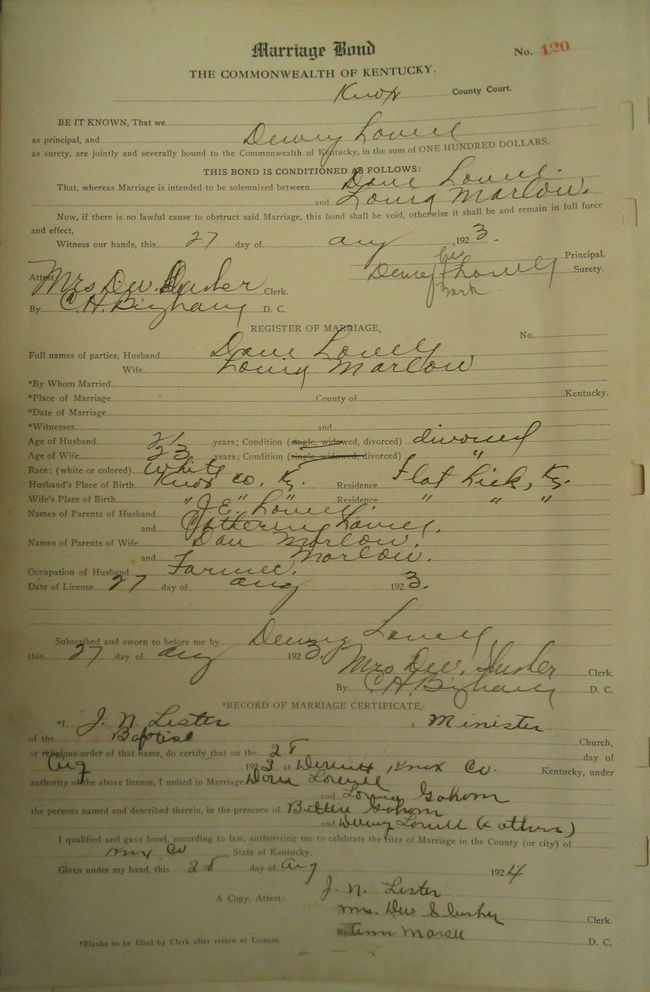 Marriage Bond
No. 120
THE COMMONWEALTH OF KENTUCKY.
Knox County Court.
BE IT KNOWN, That we
as principal, and Dewey Lovell
as surety, are jointly and severally bound to the Commonwealth of Kentucky, in the sum of ONE HUNDRED DOLLARS.
THIS BOND IS CONDITIONED AS FOLLOWS:
That, whereas Marriage is intended to be solemnized between Dave Lovell.
and Louiza Marlow.
Now, if there is no lawful cause to obstruct said Marriage, this bond shall be void, otherwise it shall be and remain in full force
and effect,
Witness our hands, this 27 day of Aug 1923.
his Principal,
Attest Mrs Dew. Slusher Clerk. Dewey + Lovell Surety.
By C. H. Bingham D. C. mark
REGISTER OF MARRIAGE,
No.
Full names of parties, Husband Dave Lovell
Wife Marlow
*By Whom Married
*Place of Marriage County of Kentucky.
*Date of Marriage
*Witnesses and
Age of Husband 21 years; Condition (single, widowed, divorced) divorced
Age of Wife 23 years; Condition (single, widowed, divorced) "
Race: (white or colored) White
Husband's Place of Birth Knox Co. Ky. Residence Flat Lick, Ky.
Wife's Place of Birth " " " Residence " " "
Names of Parents of Husband J.E. Lovell.
and Lovell.
Names of Parents of Wife Dan Marlow.
and Marlow.
Occupation of Husband Farmer.
Date of License 27 day of Aug 1923.
Subscribed and sworn to before me by Dewey Lovell
this 27 day of Aug 1923. Mrs Dew. Slusher Clerk,
By C. H. Bingham D. C.
*RECORD OF MARRIAGE CERTIFICATE.
*I, J. N. Lester a Minister
of the Baptist Church,
or religious order of that name, do certify that on the 28 day of
Aug 1923 at Knox Co. Kentucky, under
authority of the above license, I united in Marriage Lovell
and
the persons named and described therein, in the presence of
and Dewey Lovell (& others)
I qualified and gave bond, according to law, authorizing me to celebrate the rites of Marriage in the County (or city) of
Knox Co State of Kentucky.
Given under my hand, this 28 day of Aug 1924
J. N. Lester
A Copy, Attest: Mrs. Dew Slusher Clerk.
By D. C.
*Blanks to be filled by Clerk after return of License.